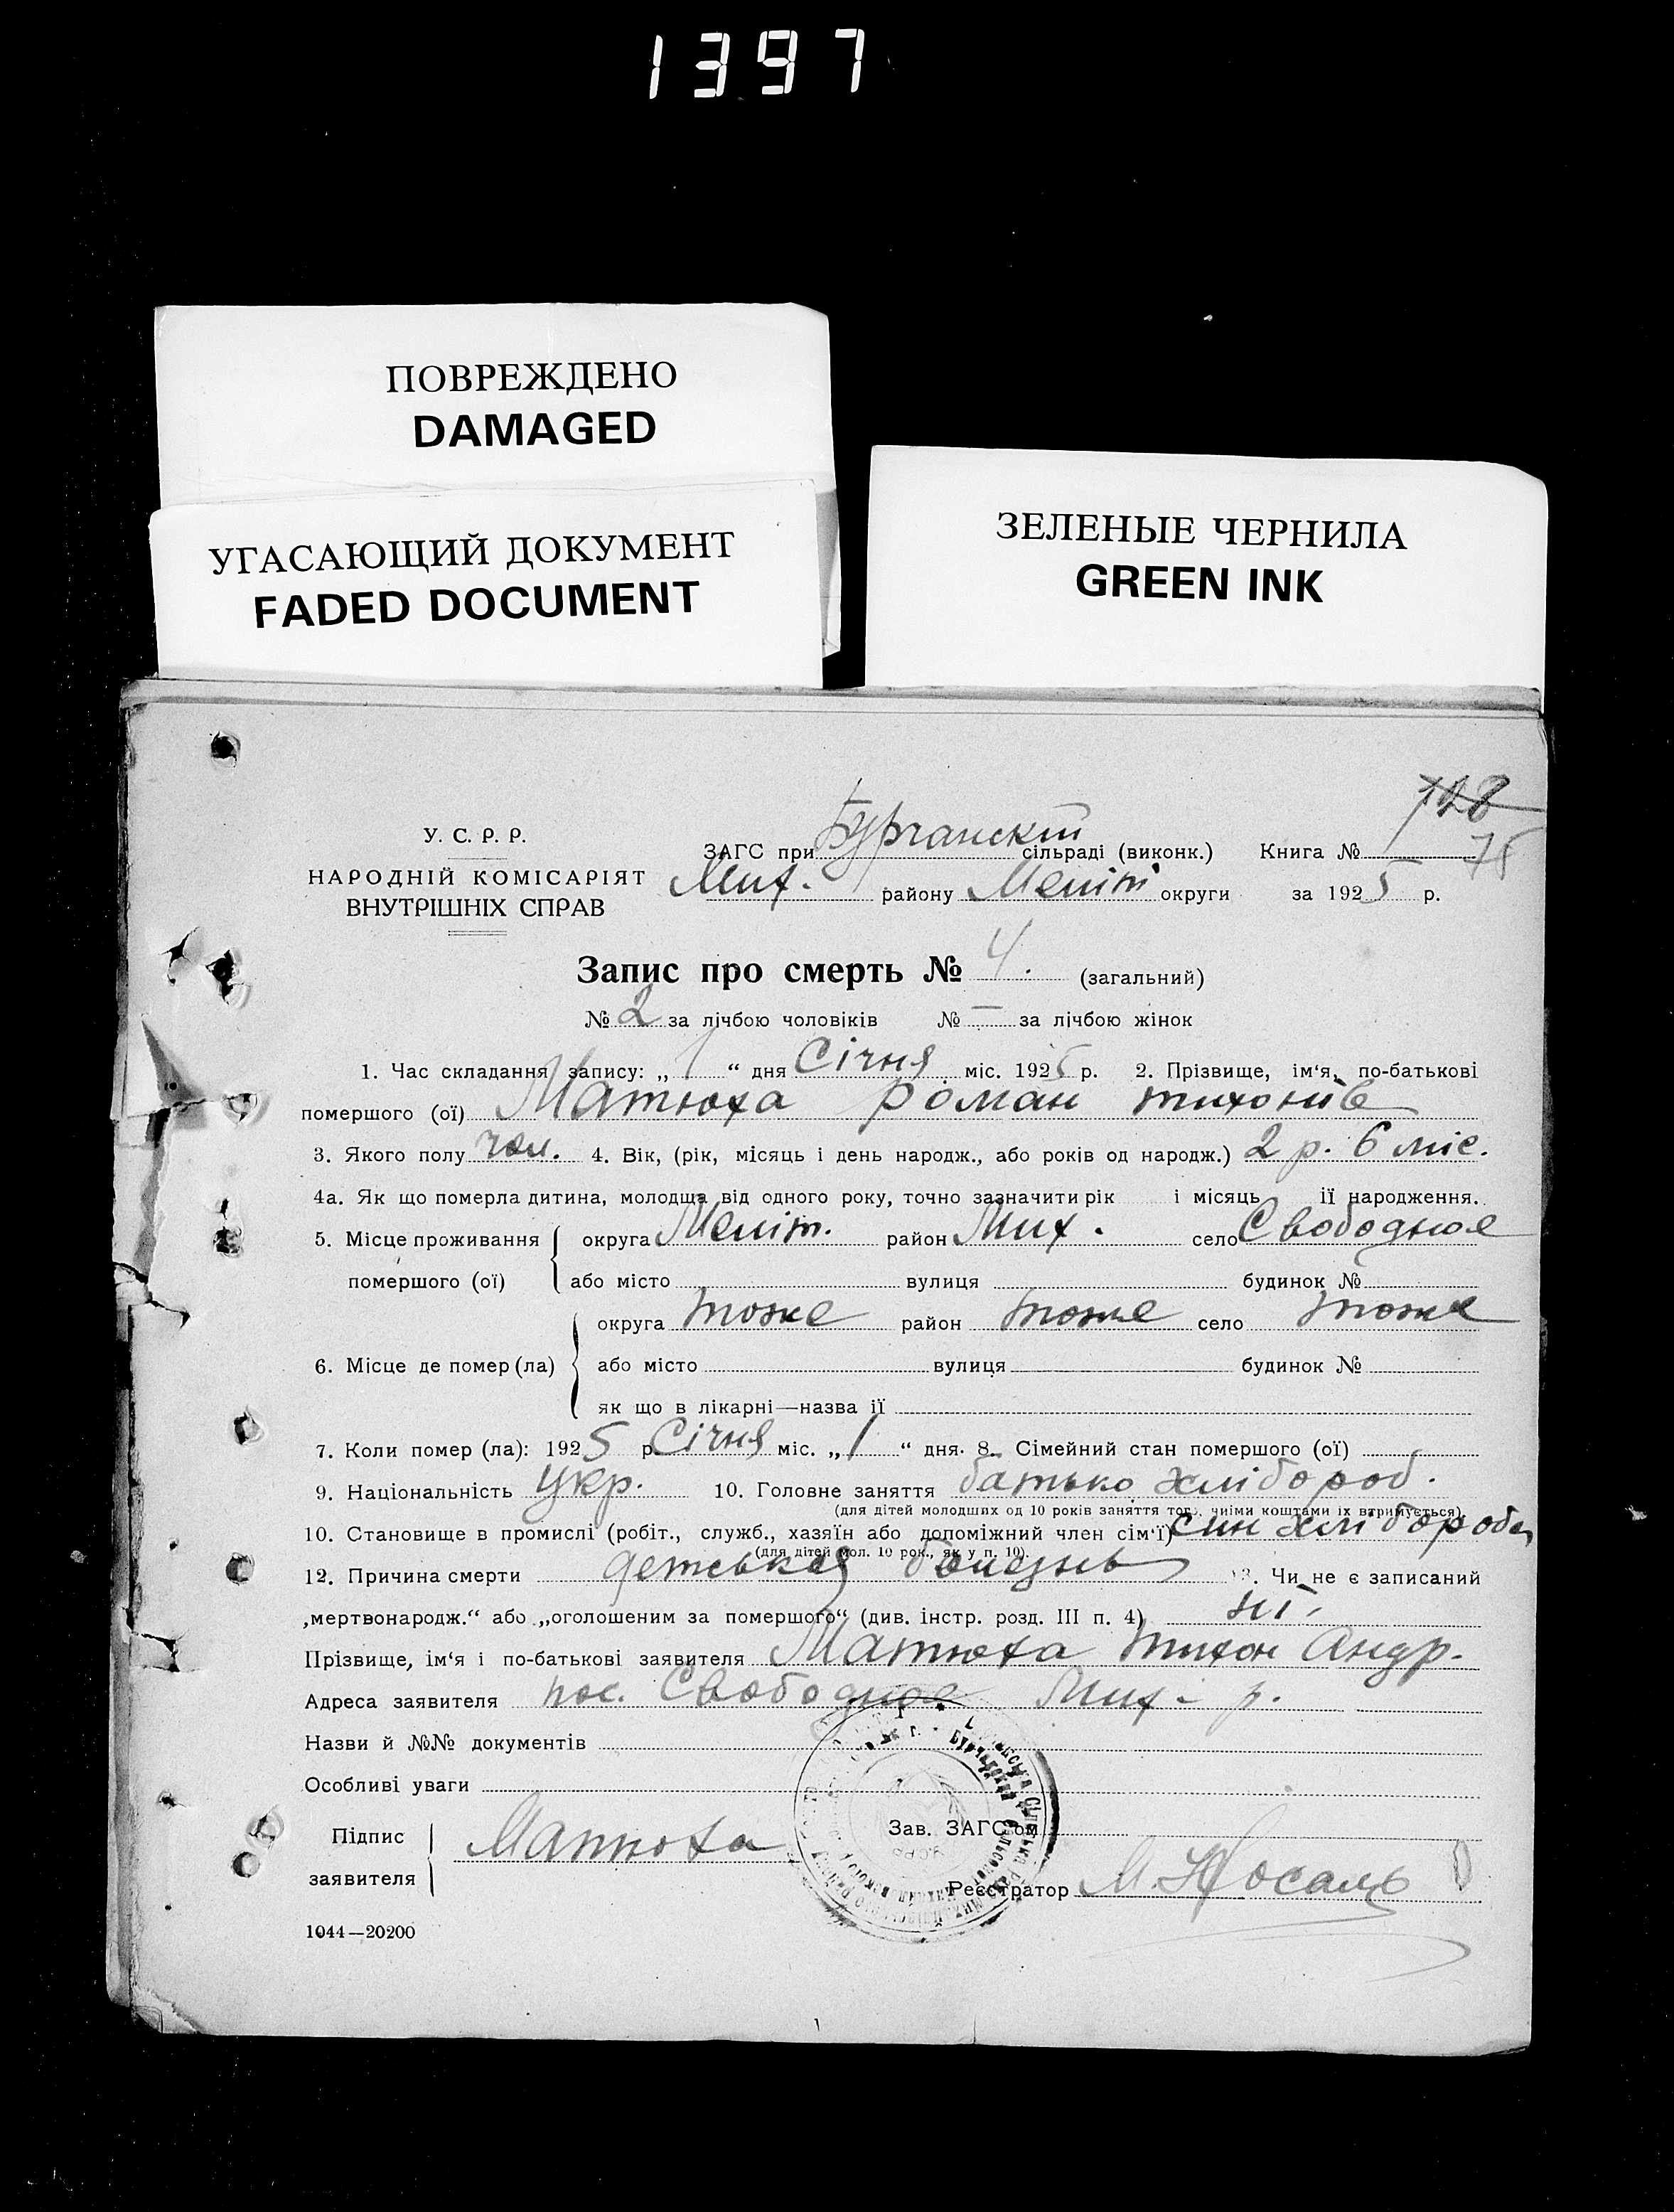 1397
ПОВРЕЖДЕНО
DAMAGED
УГАСАЮЩИЙ ДОКУМЕНТ
FADED DOCUMENT
ЗЕЛЕНЫЕ ЧЕРНИЛА
GREEN INK
728
75
У. С. Р. Р.
НАРОДНІЙ КОМІСАРІЯТ
ВНУТРІШНІХ СПРАВ
ЗАГС при Бурчанскій сільраді (виконк.) Книга №
Мих. району Меліт округи за 1925 р.
Запис про смерть № 4. (загальний)
№ 2 за лічбою чоловіків № — за лічбою жінок
1. Час складання запису: „ 1 “ дня Січня міс. 1925 р. 2. Прізвище, ім‘я, по-батькові
помершого (ої) Матюха Роман тихонів
3. Якого полу чол. 4. Вік, (рік, місяць і день народж., або років од народж.) 2 р. 6 міс.
4а. Як що померла дитина, молодща від одного року, точно зазначити рік і місяць її народження.
5. Місце проживання округа Меліт. район Мих. село Свободное
помершого (ої) або місто вулиця будинок №
округа тоже район тоже село тоже
6. Місце де помер (ла) або місто вулиця будинок №
як що в лікарні—назва її
7. Коли помер (ла): 1925 р Січня міс. „ 1 “ дня. 8. Сімейний стан помершого (ої)
9. Національність Укр. 10. Головне заняття батько хлібороб.
(для дітей молодших од 10 років заняття того, чиїми коштами їх втримується)
10. Становище в промислі (робіт., служб., хазяїн або допоміжний член сім‘ї) син хлібороба
(для дітей мол. 10 рок., як у п. 10).
12. Причина смерти детская болезнь 13. Чи не є записаний
„мертвонародж.“ або „оголошеним за помершого“ (див. інстр. розд. III п. 4) ні.
Прізвище, ім‘я і по-батькові заявителя Матюха тихон Андр.
Адреса заявителя пос. Свободное Мих - р.
Назви й №№ документів
Особливі уваги
Підпис
заявителя Матюха
Зав. ЗАГС‘ом
Реєстратор М. Носаль
1044—20200